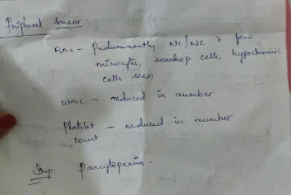 Peripheral smear:
RBC - Predominantly NC/NC c̄ few
microcytes, teardrop cells, hypochromic
cells seen
WBC - reduced in number
Platelet - reduced in number
count
Imp: Pancytopenia.